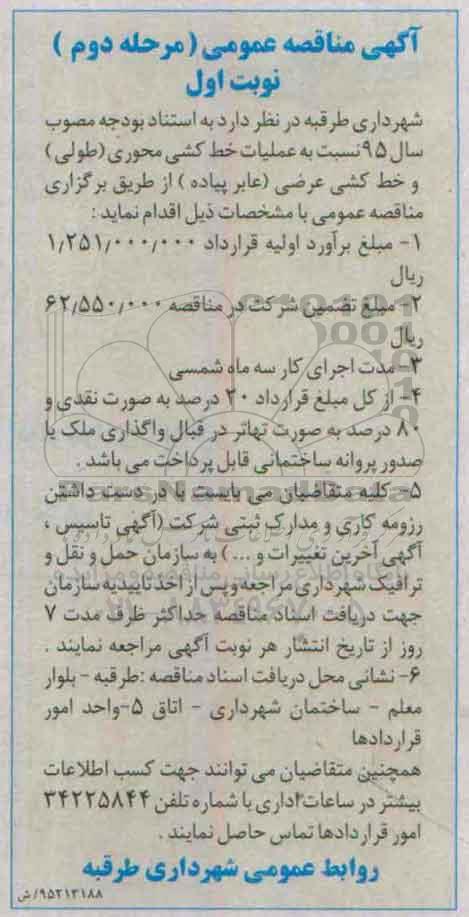 آگهی مناقصه عمومی ( مرحله دوم )
نوبت اول
شهرداری طرقبه در نظر دارد به استناد بودجه مصوب
سال ۹۵ نسبت به عملیات خط کشی محوری (طولی)
و خط کشی عرضی (عابر پیاده ) از طریق برگزاری
مناقصه عمومی با مشخصات ذیل اقدام نماید :
۱- مبلغ برآورد اولیه قرارداد ۱٫۲۵۱٫۰۰۰٫۰۰۰
ریال
۲- مبلغ تضمین شرکت در مناقصه ۶۲٫۵۵۰٫۰۰۰
ریال
۳- مدت اجرای کار سه ماه شمسی
۴- از کل مبلغ قرارداد ۲۰ درصد به صورت نقدی و
۸۰ درصد به صورت تهاتر در قبال واگذاری ملک یا
صدور پروانه ساختمانی قابل پرداخت می باشد .
۵- کلیه متقاضیان می بایست با در دست داشتن
رزومه کاری و مدارک ثبتی شرکت (آگهی تاسیس ،
آگهی آخرین تغییرات و ... ) به سازمان حمل و نقل و
ترافیک شهرداری مراجعه و پس از اخذ تاییدیه سازمان
جهت دریافت اسناد مناقصه حداکثر ظرف مدت ۷
روز از تاریخ انتشار هر نوبت آگهی مراجعه نمایند .
۶- نشانی محل دریافت اسناد مناقصه : طرقبه - بلوار
معلم - ساختمان شهرداری - اتاق ۵-واحد امور
قراردادها
همچنین متقاضیان می توانند جهت کسب اطلاعات
بیشتر در ساعات اداری با شماره تلفن ۳۴۲۲۵۸۴۴
امور قراردادها تماس حاصل نمایند .
روابط عمومی شهرداری طرقبه
۹۵۲۱۳۱۸۸/ش